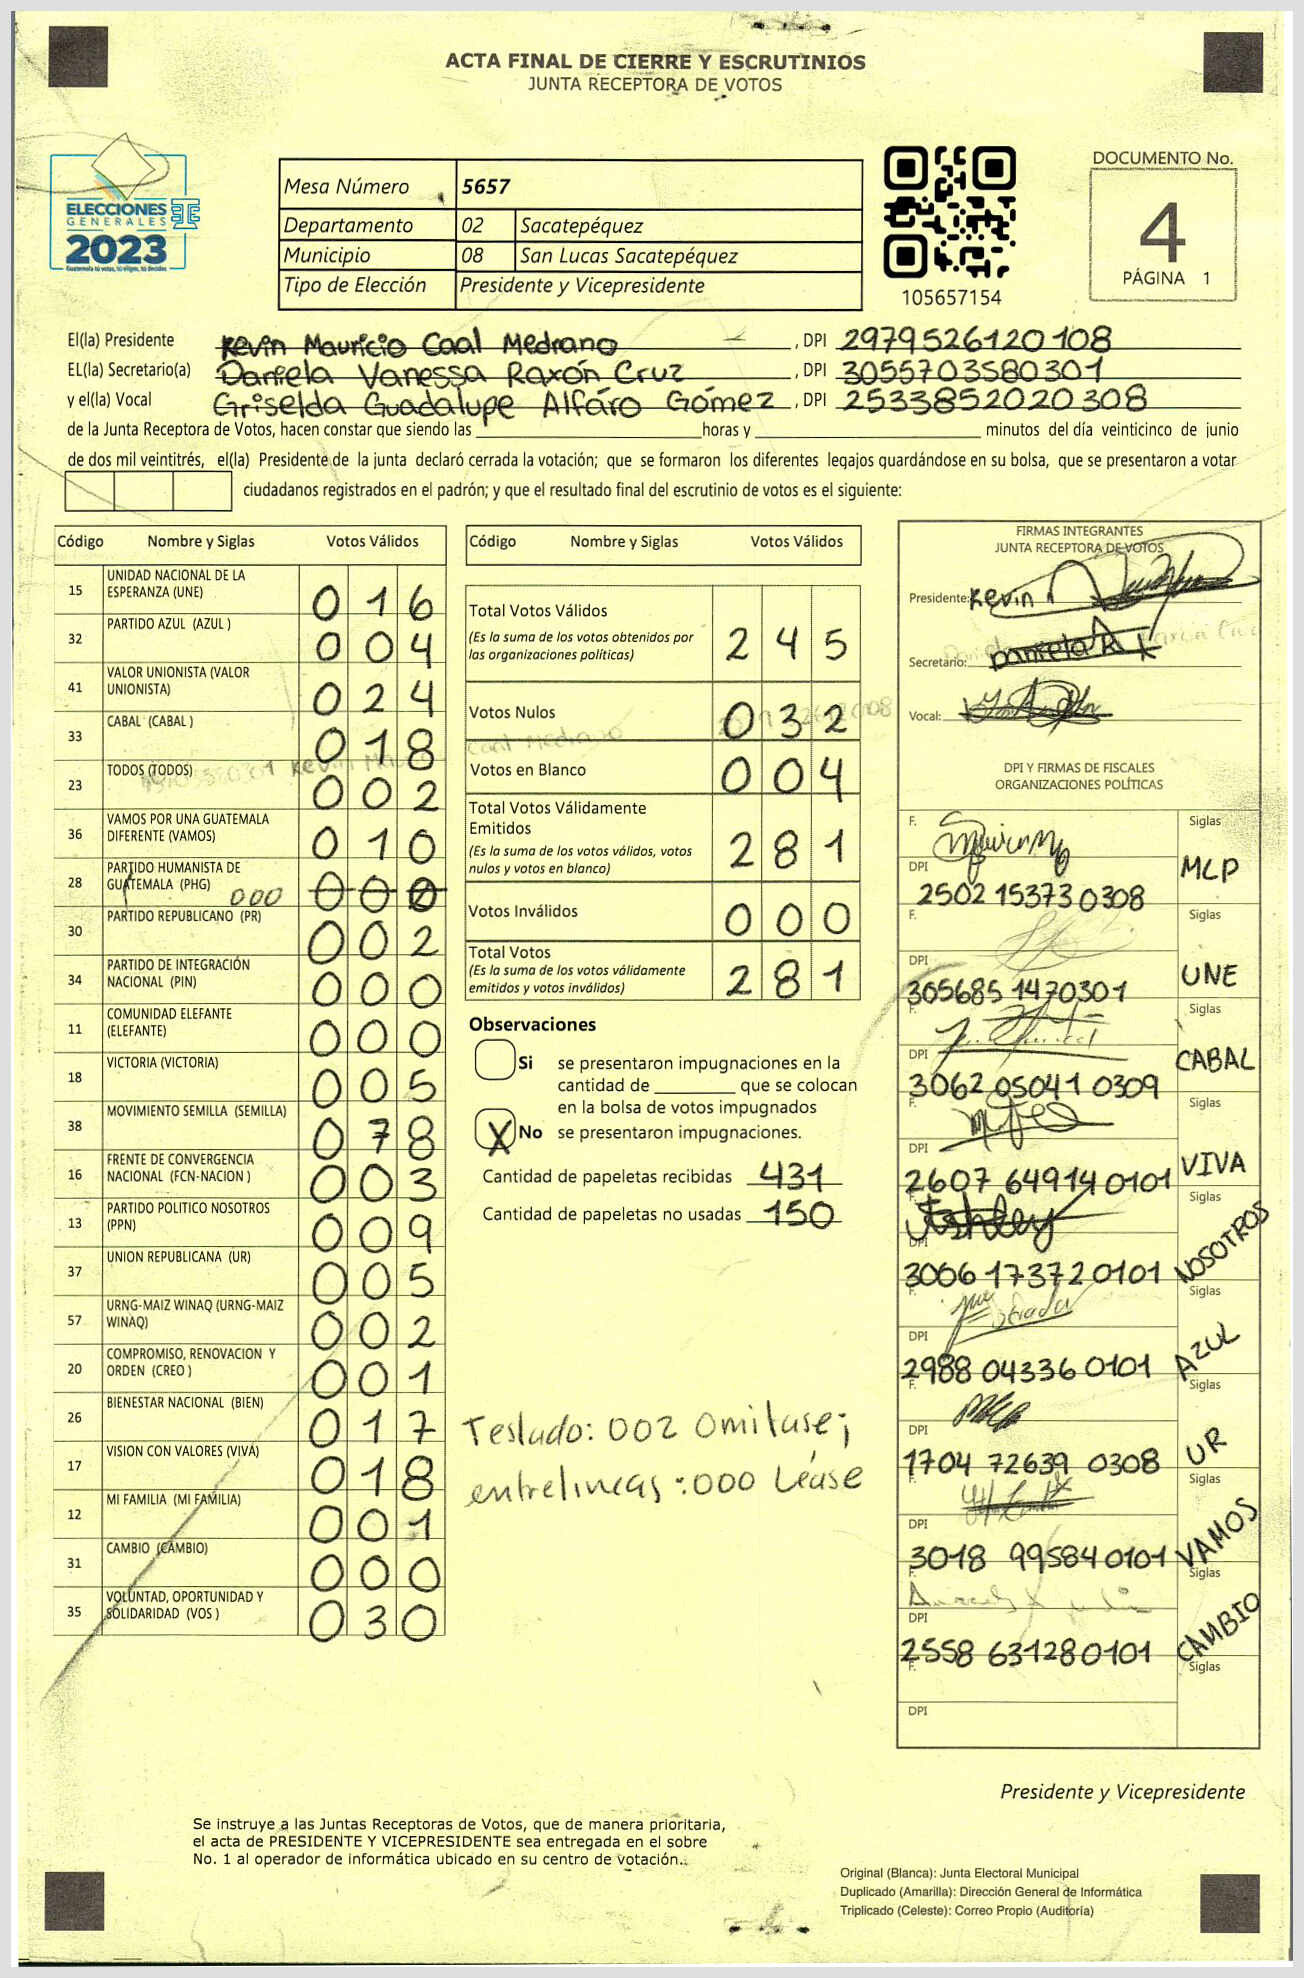 ACTA FINAL DE CIERRE Y ESCRUTINIOS
JUNTA RECEPTORA DE VOTOS
ELECCIONES
GENERALES
2023
Guatemala tú votas, tú eliges, tú decides
Mesa Número 5657
Departamento 02 Sacatepéquez
Municipio 08 San Lucas Sacatepéquez
Tipo de Elección Presidente y Vicepresidente
105657154
DOCUMENTO No.
4
PÁGINA 1
El(la) Presidente Kevin Mauricio Caal Medrano, DPI 2979526120108
EL(la) Secretario(a) Daniela Vanessa Raxón Cruz, DPI 3055703580301
y el(la) Vocal Griselda Guadalupe Alfaro Gómez, DPI 2533852020308
de la Junta Receptora de Votos, hacen constar que siendo las ____ horas y ____ minutos del día veinticinco de junio
de dos mil veintitrés, el(la) Presidente de la junta declaró cerrada la votación; que se formaron los diferentes legajos guardándose en su bolsa, que se presentaron a votar
ciudadanos registrados en el padrón; y que el resultado final del escrutinio de votos es el siguiente:
Código Nombre y Siglas Votos Válidos
15 UNIDAD NACIONAL DE LA ESPERANZA (UNE) 016
32 PARTIDO AZUL (AZUL ) 004
41 VALOR UNIONISTA (VALOR UNIONISTA) 024
33 CABAL (CABAL ) 018
23 TODOS (TODOS) 002
36 VAMOS POR UNA GUATEMALA DIFERENTE (VAMOS) 010
28 PARTIDO HUMANISTA DE GUATEMALA (PHG) 000
30 PARTIDO REPUBLICANO (PR) 002
34 PARTIDO DE INTEGRACIÓN NACIONAL (PIN) 000
11 COMUNIDAD ELEFANTE (ELEFANTE) 000
18 VICTORIA (VICTORIA) 005
38 MOVIMIENTO SEMILLA (SEMILLA) 078
16 FRENTE DE CONVERGENCIA NACIONAL (FCN-NACION ) 003
13 PARTIDO POLITICO NOSOTROS (PPN) 009
37 UNION REPUBLICANA (UR) 005
57 URNG-MAIZ WINAQ (URNG-MAIZ WINAQ) 002
20 COMPROMISO, RENOVACION Y ORDEN (CREO ) 001
26 BIENESTAR NACIONAL (BIEN) 017
17 VISION CON VALORES (VIVA) 018
12 MI FAMILIA (MI FAMILIA) 001
31 CAMBIO (CAMBIO) 000
35 VOLUNTAD, OPORTUNIDAD Y SOLIDARIDAD (VOS ) 030
Código Nombre y Siglas Votos Válidos
Total Votos Válidos 245
(Es la suma de los votos obtenidos por
las organizaciones políticas)
Votos Nulos 032
Votos en Blanco 004
Total Votos Válidamente
Emitidos 281
(Es la suma de los votos válidos, votos
nulos y votos en blanco)
Votos Inválidos 000
Total Votos 281
(Es la suma de los votos válidamente
emitidos y votos inválidos)
Observaciones
Si se presentaron impugnaciones en la
cantidad de ____ que se colocan
en la bolsa de votos impugnados
X No se presentaron impugnaciones.
Cantidad de papeletas recibidas 431
Cantidad de papeletas no usadas 150
Teslado: 002 Omitase;
entrelineas: 000 Léase
FIRMAS INTEGRANTES
JUNTA RECEPTORA DE VOTOS
Presidente: Kevin
Secretario: Daniela
Vocal:
DPI Y FIRMAS DE FISCALES
ORGANIZACIONES POLÍTICAS
F. Siglas
DPI 2502 15373 0308 MLP
F. Siglas
DPI 305685 1470301 UNE
F. Siglas
DPI 3062 05041 0309 CABAL
F. Siglas
DPI 2607 64914 0101 VIVA
F. Ashley Siglas
DPI 3006 17372 0101 NOSOTROS
F. Siglas
DPI 2988 04336 0101 AZUL
F. Siglas
DPI 1704 72639 0308 UR
F. Siglas
DPI 3018 99584 0101 VAMOS
F. Siglas
DPI 2558 63128 0101 CAMBIO
F. Siglas
DPI
Presidente y Vicepresidente
Se instruye a las Juntas Receptoras de Votos, que de manera prioritaria,
el acta de PRESIDENTE Y VICEPRESIDENTE sea entregada en el sobre
No. 1 al operador de informática ubicado en su centro de votación..
Original (Blanca): Junta Electoral Municipal
Duplicado (Amarilla): Dirección General de Informática
Triplicado (Celeste): Correo Propio (Auditoría)